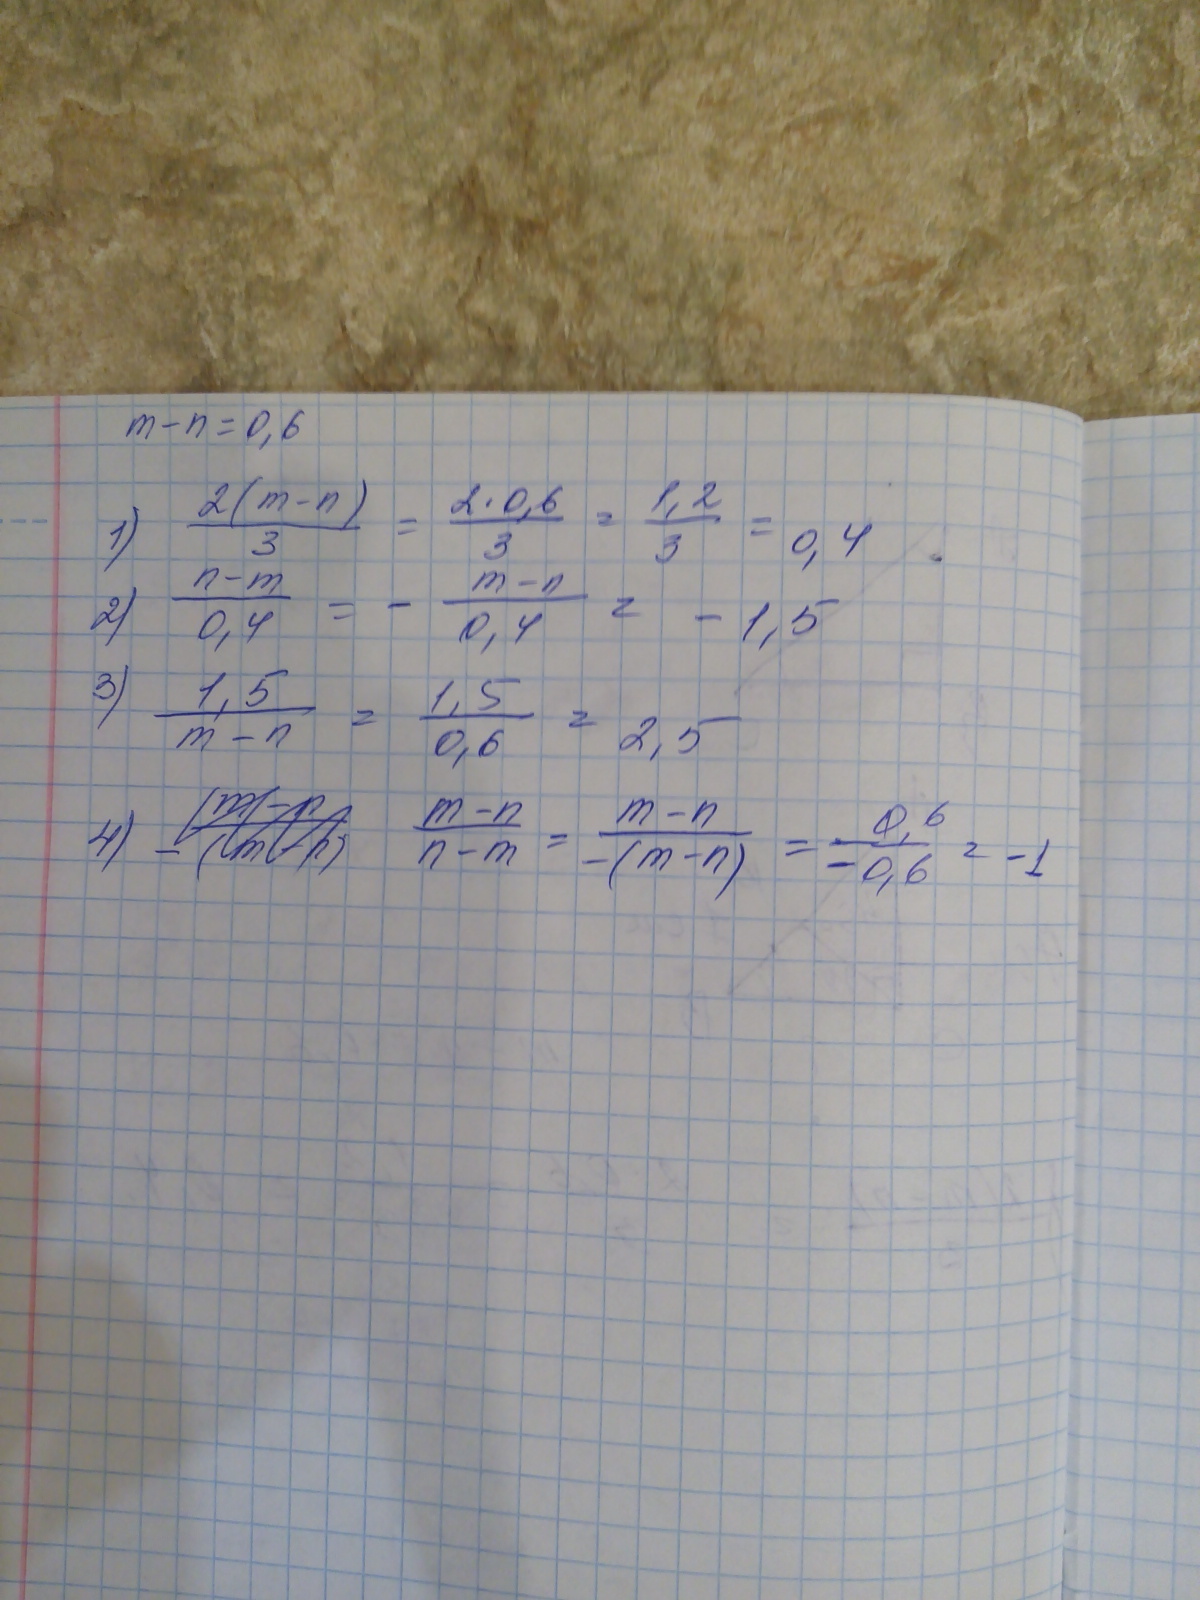 m-n=0,6
1) 2(m-n)/3 = 2·0,6/3 = 1,2/3 = 0,4
2) n-m/0,4 = - m-n/0,4 = - 1,5
3) 1,5/m-n = 1,5/0,6 = 2,5
4) m-n/n-m = m-n/-(m-n) = 0,6/-0,6 = -1